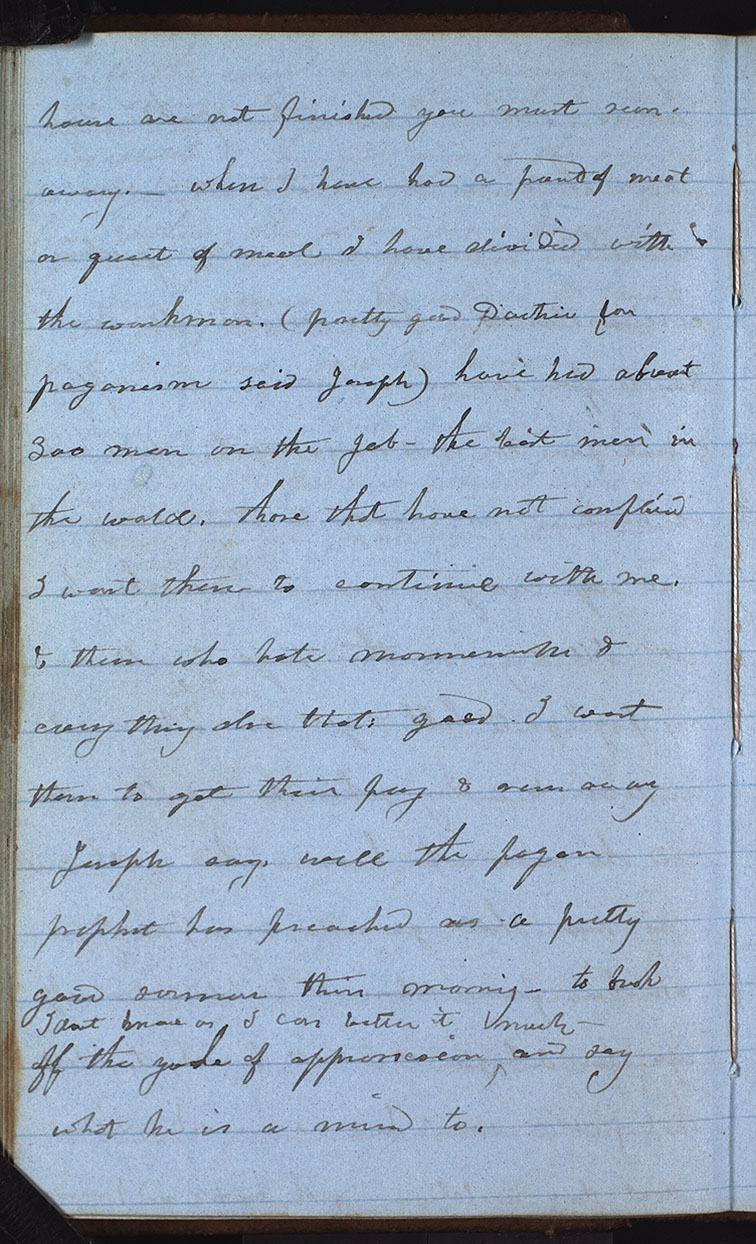 house are not finished you must run
away.— when I have had a pound of meat
or quart of meal I have divided with
the workmen. (pretty good Doctrine for
paganism said Joseph) have had about
300 men on the Job— the best men in
the world. those that have not complaind
I want them to continue with me.
& them who hate mormonism &
every thing else thats good. I want
them to get their pay & run away
Joseph says. well the pagan
prophet has preached us a pretty
good sermon this morning— to break
I dont know as I can better it much—
off the yoke of oppression, and say
what he is a mind to.